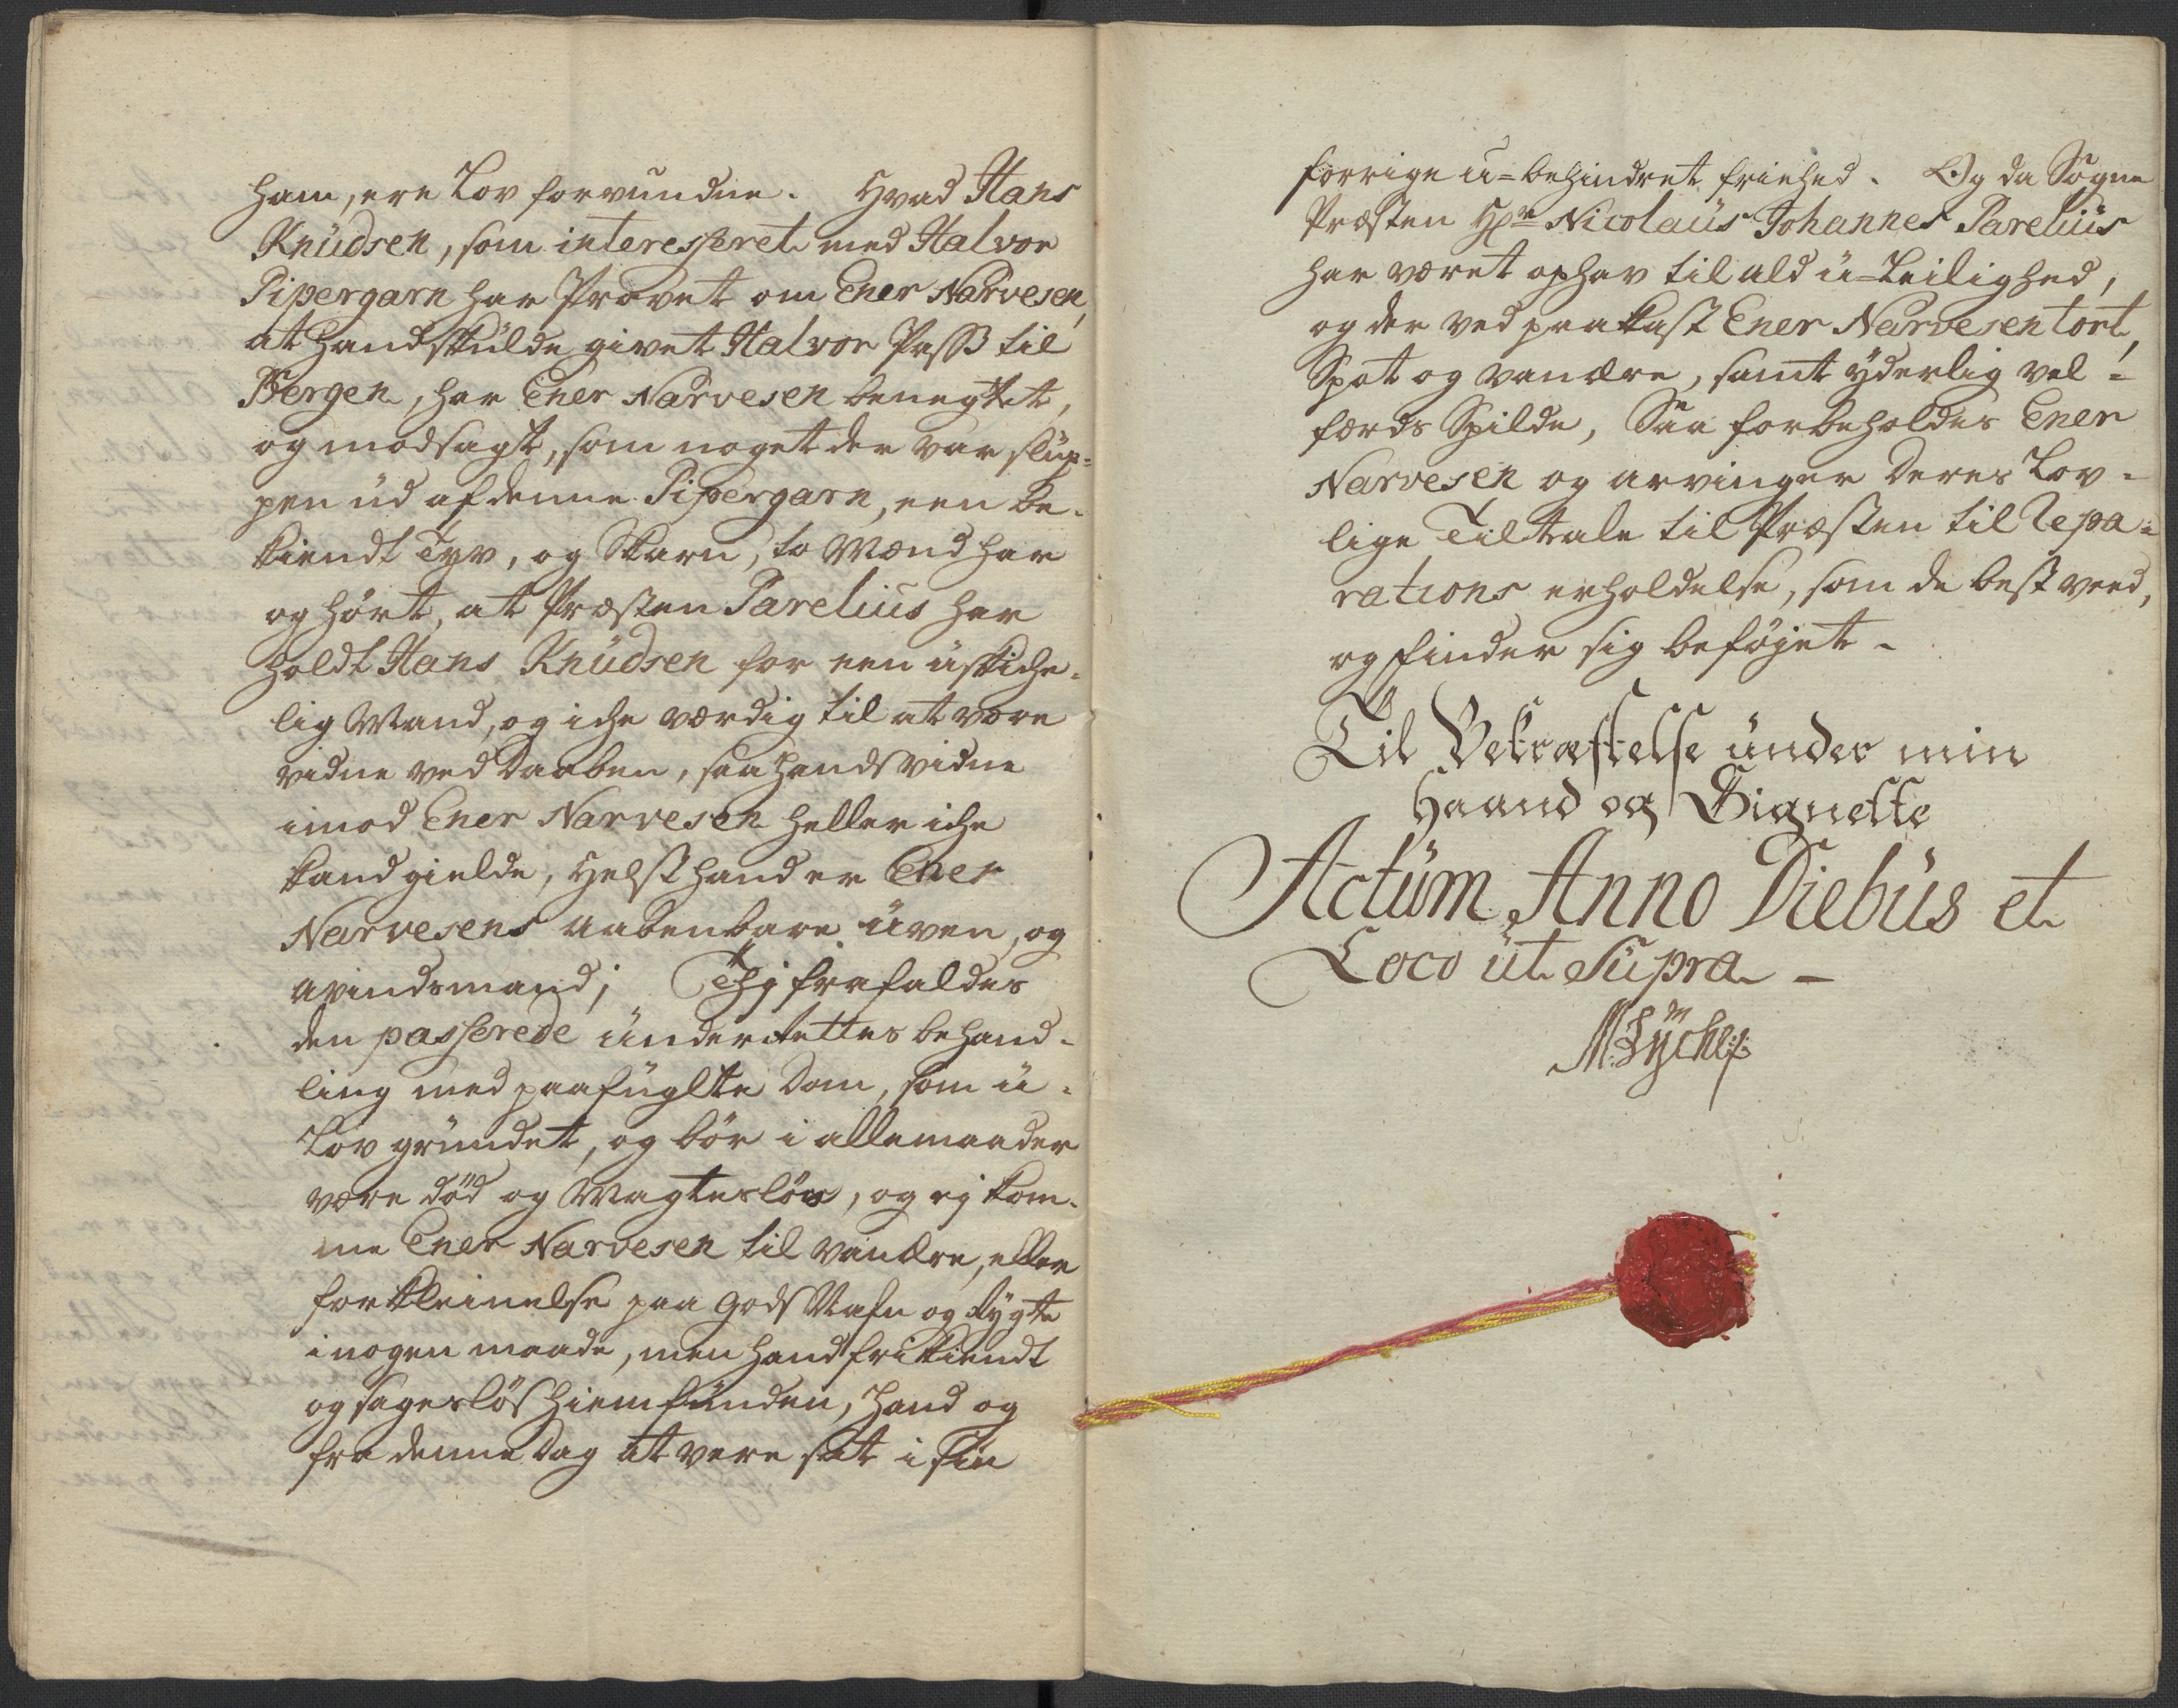 ham, ere Lov forvundne. Hvad Hans
Knüdsen, som interesseret med Halvor
Pipergarn har Provet om Ener Narvesen,
at Hand skulde givet Halvor Pass til
Bergen, har Ener Narvesen benegtet,
og modsagt, som noget der var slup-
pen üd af denne Pipergarn, een be-
kiendt Tyv, og Skarn, to Mænd har
og hørt, at Præsten Parelius har
holdt Hans Knüdsen for een uskiche-
lig Mand, og iche værdig til at være
vidne ved Daaben, saa hands vidne
imod Ener Narvesen heller iche
kand gielde, Helst hand er Ener
Narvesens aabenbare üven, og
avindsmand; Thj frafaldes
den passerede ünderrettes behand-
ling med paafüglte Dom, som ü-
Lov gründet, og bør i alle maader
være død og Magtesløs, og ej kom-
me Ener Narvesen til vanære, eller
forkleinelse paa gods Nafn og Rygte
i nogen maade, men hand frikiendt
og sagesløs hiemfünden, hand og
fra denne Dag at være sat i sin
forrige ü-behindret friehed. Og da Sogne
Præsten Hr Nicolaüs Johannes Pareliüs
har været ophav til ald ü-Leilighed,
og der ved paakast Ener Narvesen tort,
Spot og vanære, samt ÿderlig vel-
færds Spilde, Saa forbeholdes Ener
Narvesen og arvinger Deres Lov-
lige Tiltale til Præsten til Repa-
rations erholdelse, som de best veed,
og finder sig beføjet -
Til Bekræftelse ünder min
Haand og Signette
Actüm Anno Diebüs et
Loco üt Süpra -